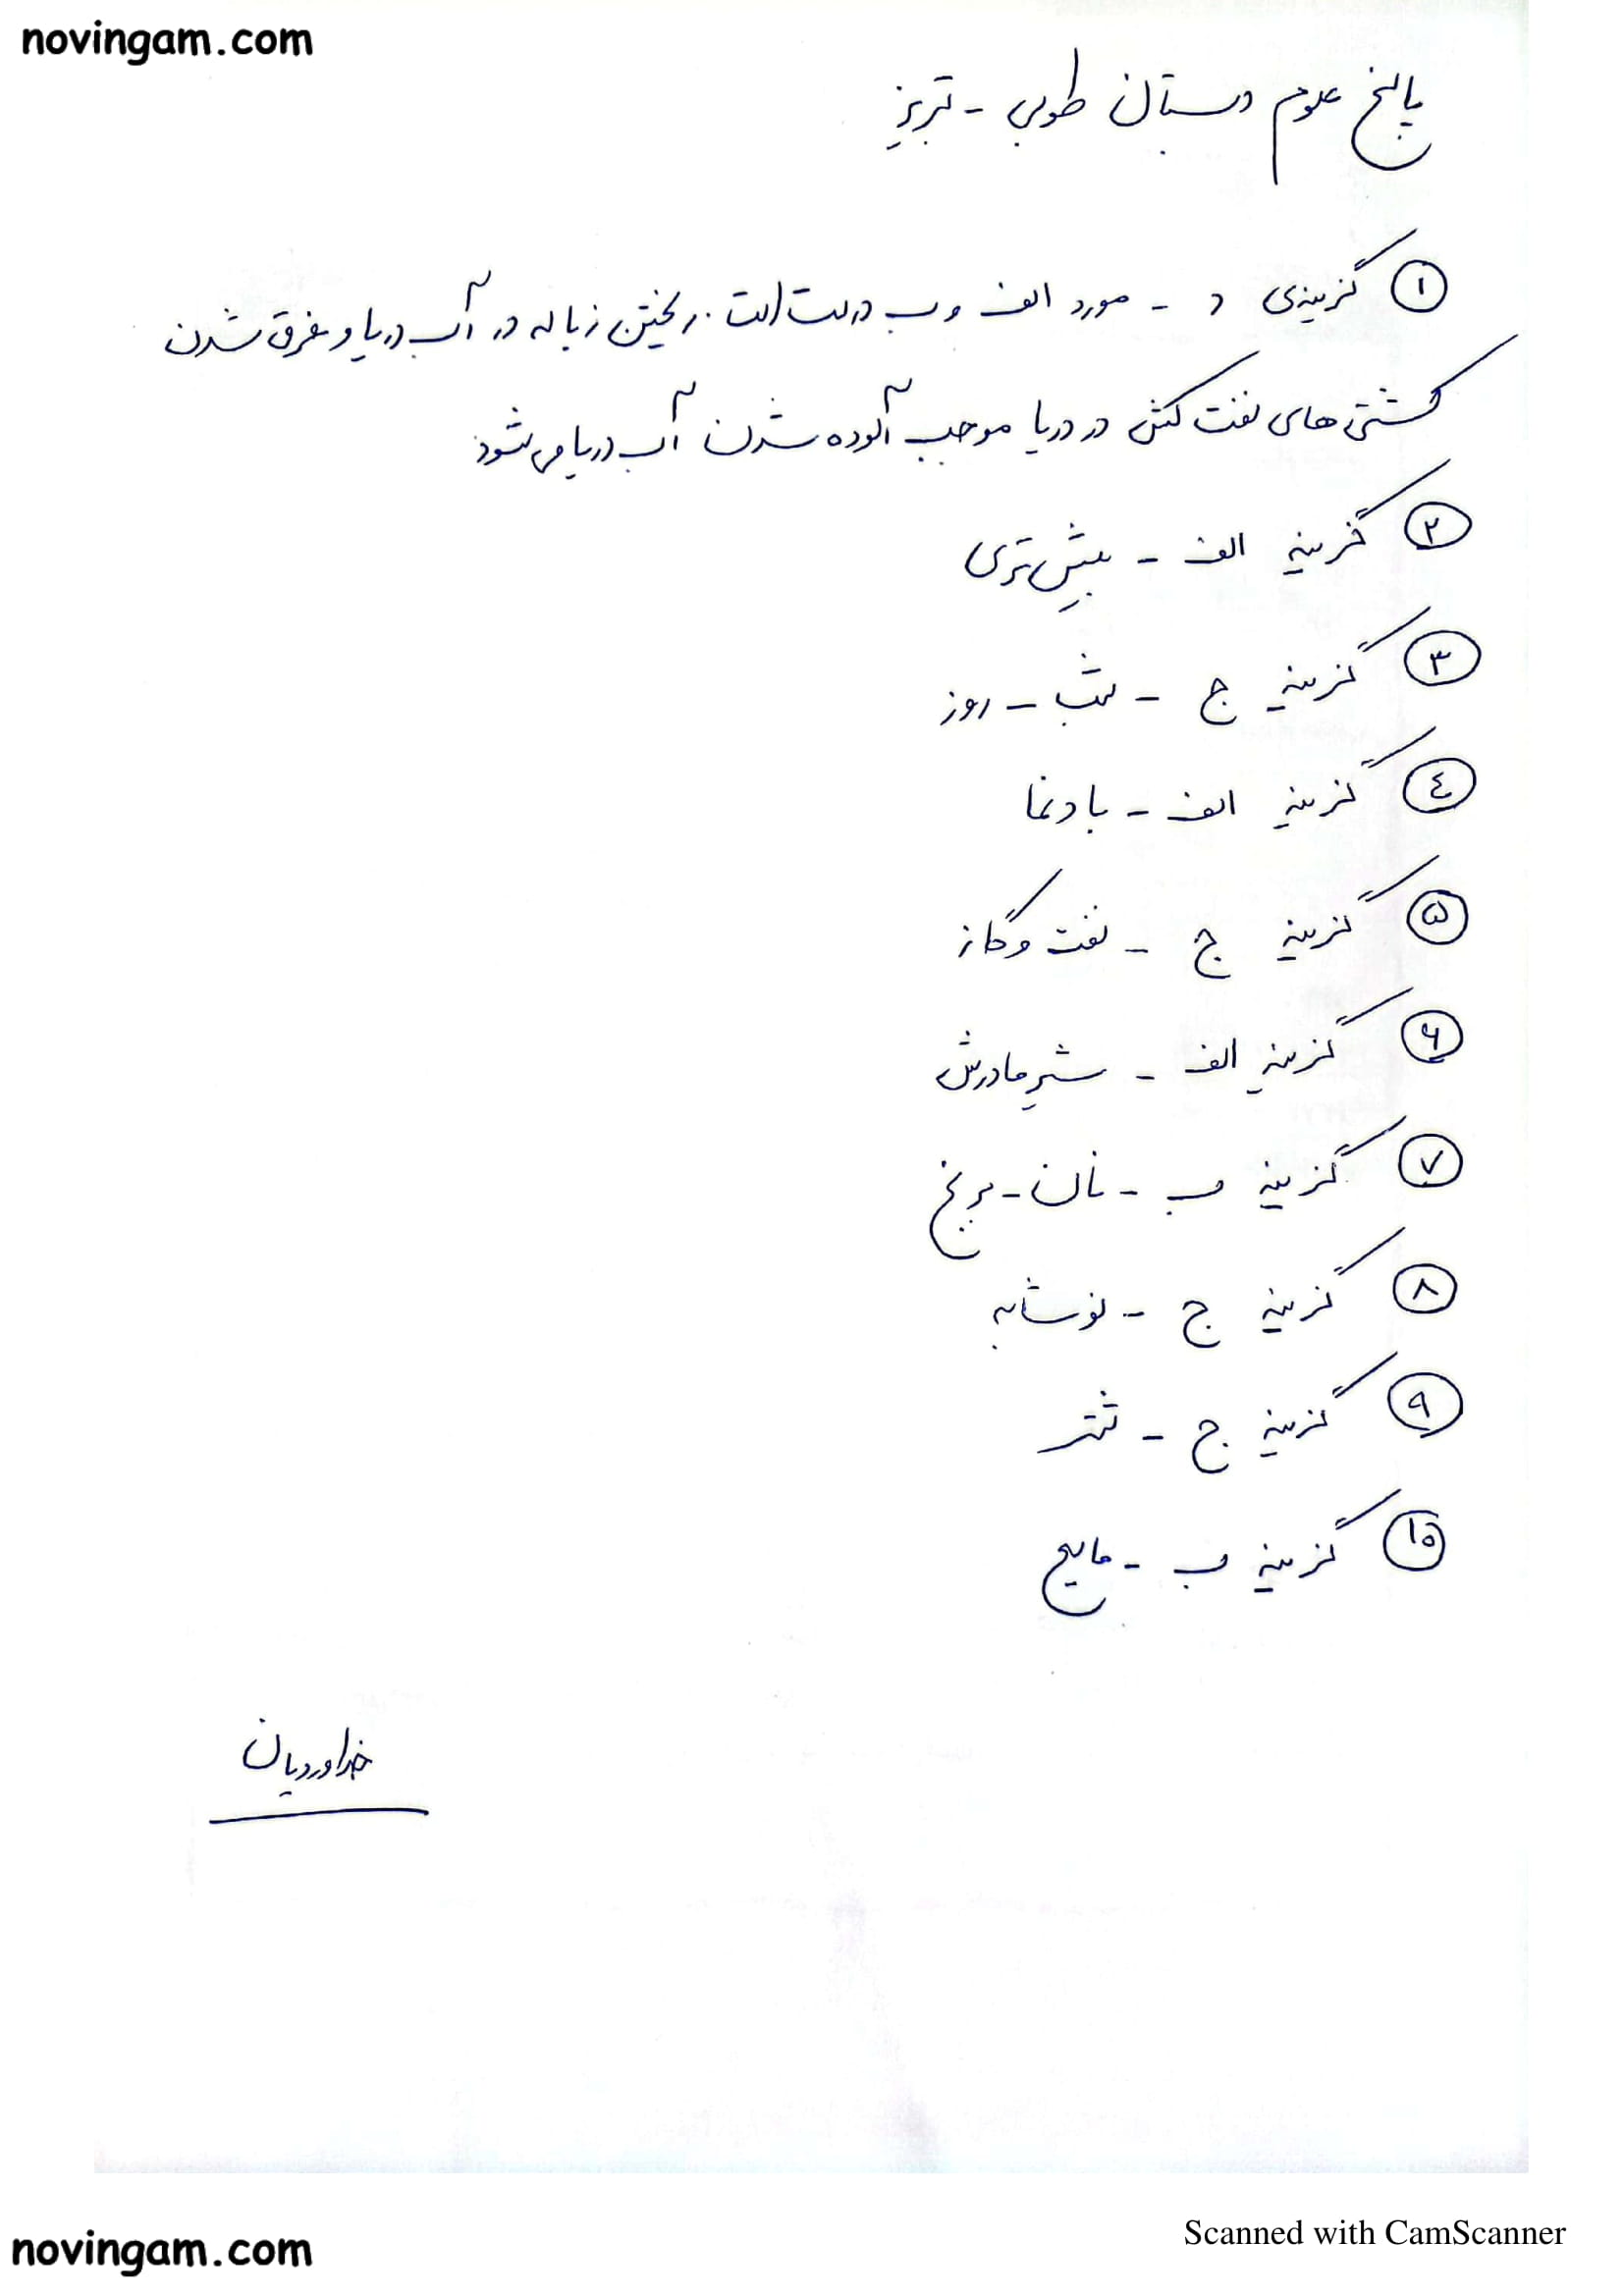 novingam.com
پاسخ علوم دبستان طوبی - تبریز
۱ گزینه‌ی د - مورد الف و ب درست است. ریختن زباله در آب دریا و غرق شدن
کشتی های نفت کش در دریا موجب آلوده شدن آب دریا می شود
۲ گزینه الف - بیش تری
۳ گزینه ج - شب - روز
٤ گزینه الف - بادنما
۵ گزینه ج - نفت و گاز
۶ گزینه الف - شیر مادرش
۷ گزینه ب - نان - برنج
۸ گزینه ج - نوشابه
۹ گزینه ج - شتر
۱۰ گزینه ب - مایع
خداوردیان
Scanned with CamScanner
novingam.com